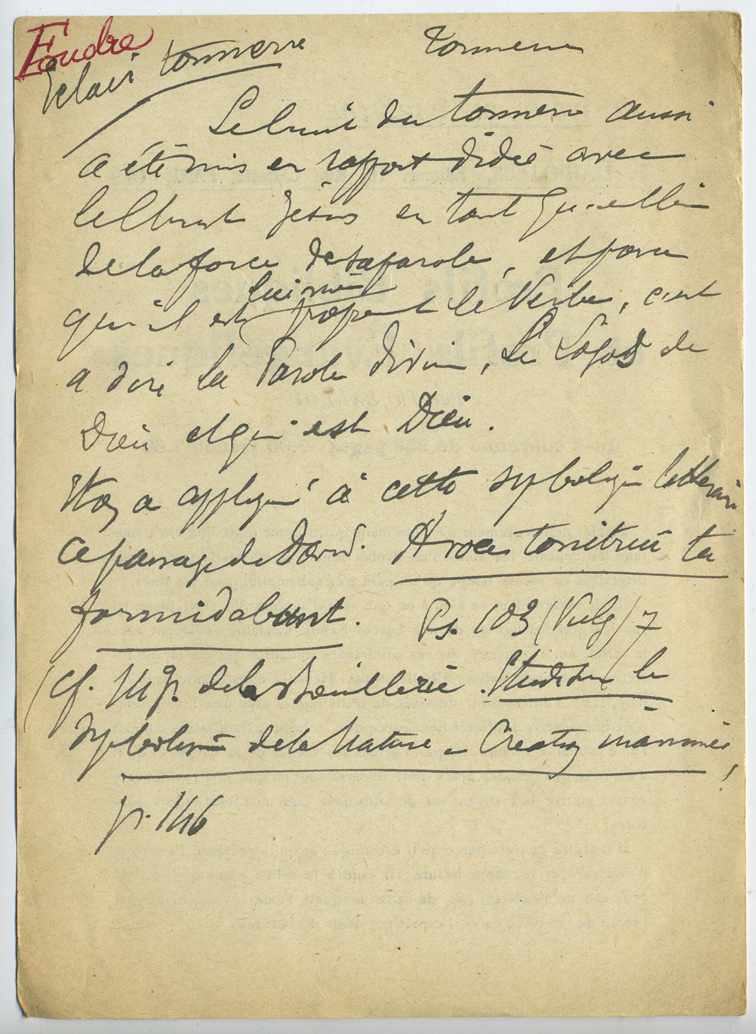 Foudre
Eclair tonnerre
Tonnerre
Le bruit du tonnerre aussi
a été mis en rapport d'idée avec
le Christ Jésus en tant qu'emblème
de la force de sa parole, et parce
qu'il est lui-même proprement le Verbe, c'est
a dire la Parole divine, Le Logos de
Dieu et qui est Dieu.
Et on a appliqué à cette symbolique
ce passage de David. A voce tonitrui tui
formidabunt. Ps. 103 (Vulg) 7
(cf. Mgr. de la Bouillerie. Etude sur le
Symbolisme de la Nature - Creation inanimée,
p. 146